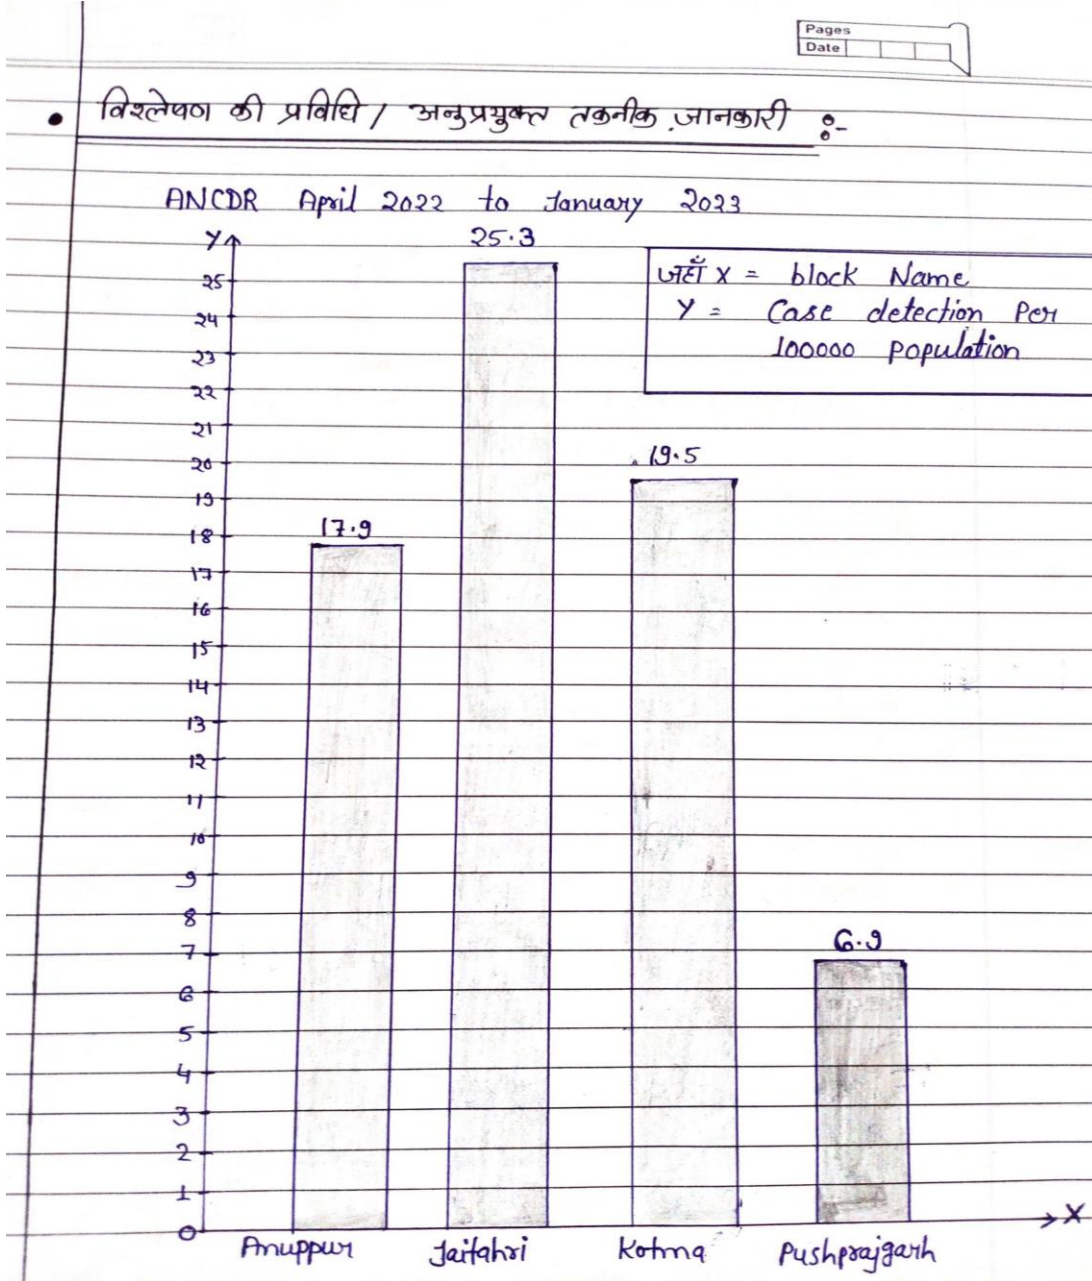 Pages
Date
• विश्लेषण की प्रविधि / अनुप्रयुक्त तकनीक जानकारी :-
ANCDR April 2022 to January 2023
Y
25.3
जहाँ X = block Name
Y = Case detection Per
100000 population
25
24
23
22
21
20
19.5
19
18
17.9
17
16
15
14
13
12
11
10
9
8
7
6.9
6
5
4
3
2
1
0
X
Anuppur Jaitahri Kotma Pushprajgarh